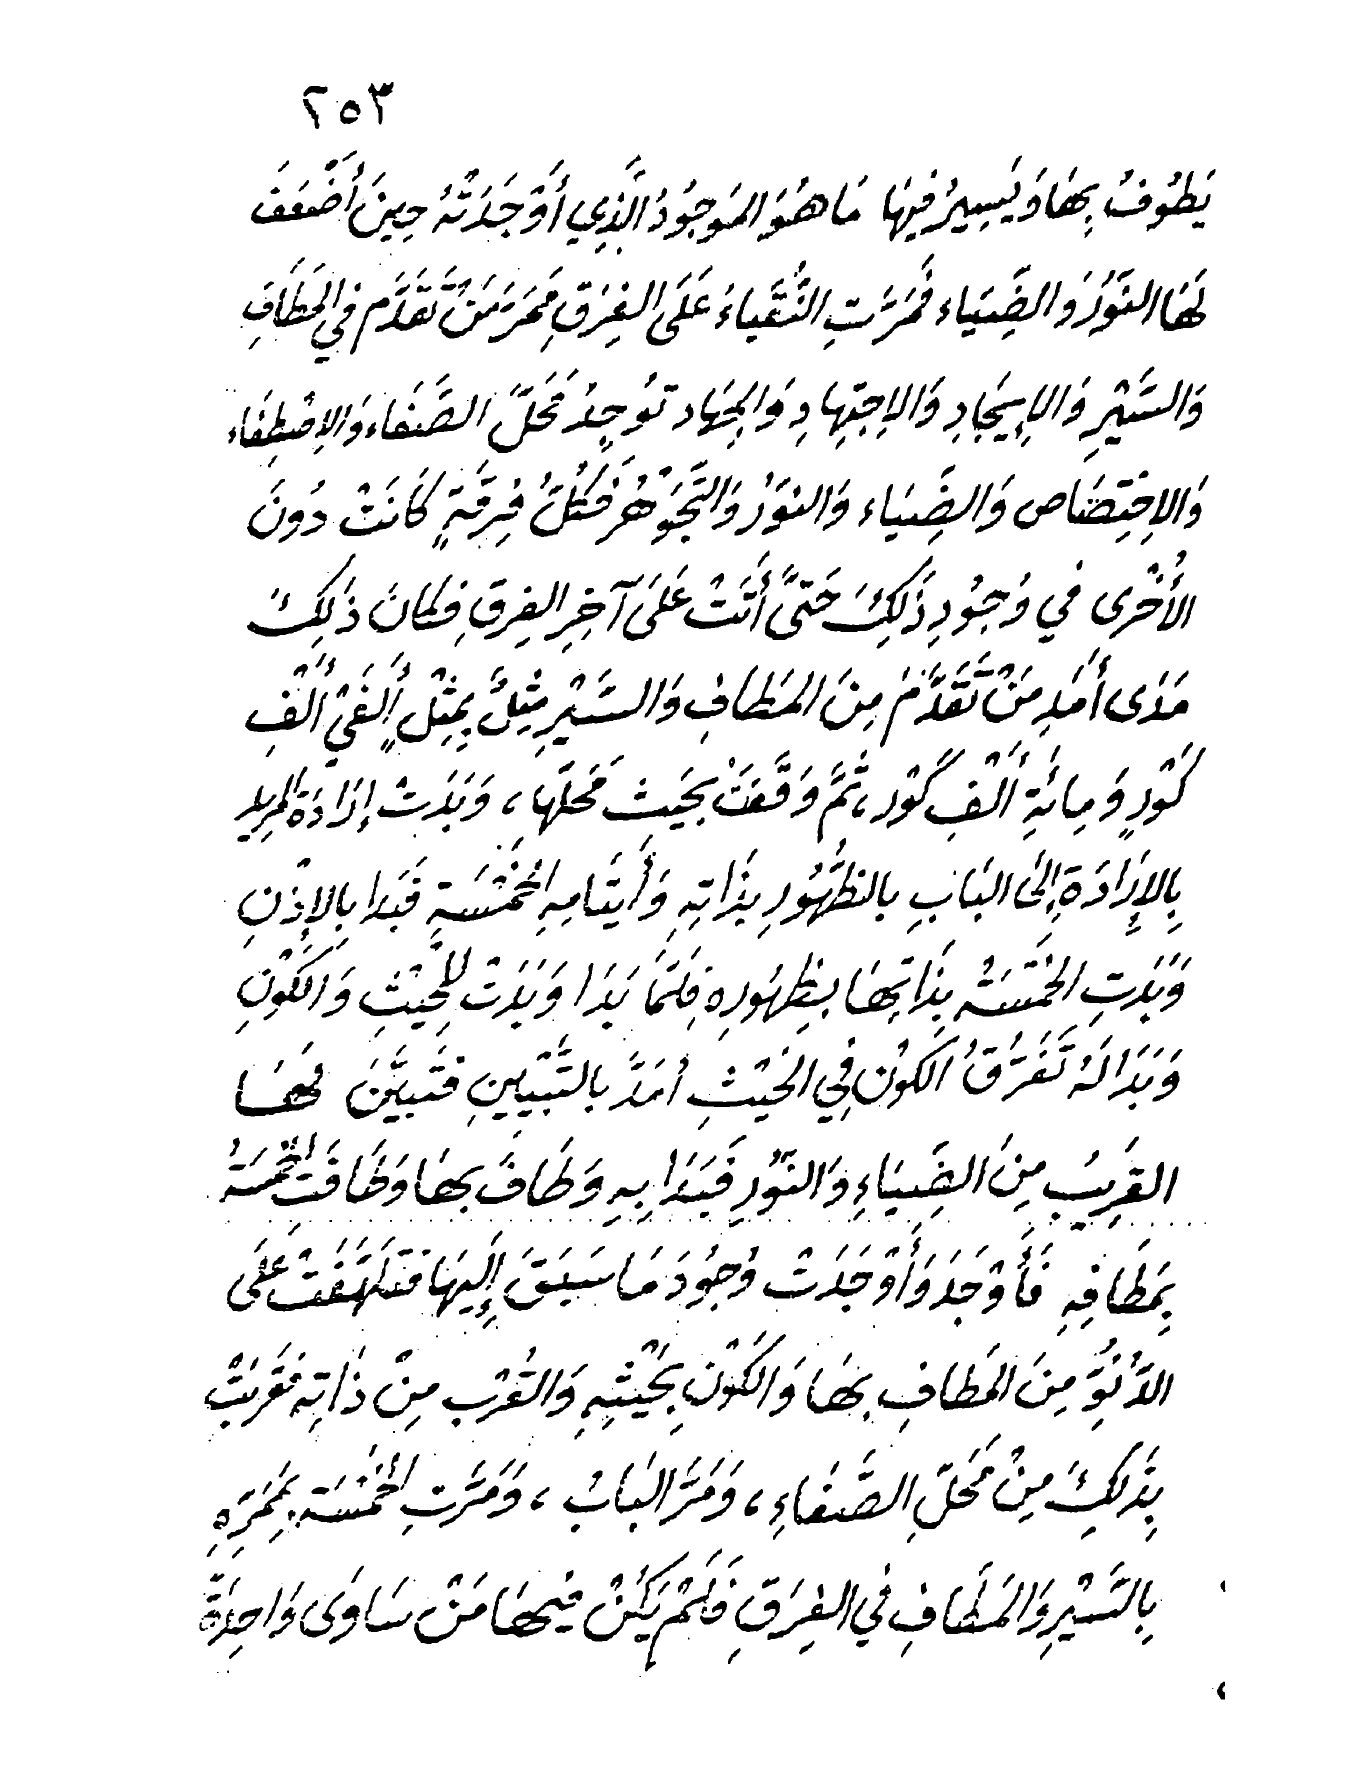 ٢٥٣
يَطُوفُ بِهَا وَيَسِيرُ فِيهَا مَا هُوَ المَوجُودُ الَّذِي أَوْجَدَتْهُ حِينَ أَضْعَفَ
لَهَا النوَّرُ وَالضِّيَاء فَمَرَّتِ النُّقَبَاءُ عَلَى الفِرَقِ فَمَرَّ مَنْ تَقَدَّم فِي المَطَافِ
وَالسَّيْرِ وَالإِيجَادِ وَالاِجتِهادِ وَالجِهَاد تُوجِدُ مَحَلَّ الصَّفَاء وَالاِصْطِفَاء
وَالاِخْتِصَاص وَالضِّيَاء وَالنوَّرُ وَالتَّجَوْهُر فَكُلُّ فِرقَةٍ كَانَتْ دُونَ
الأُخْرى فِي وُجُودِ ذَلِكَ حَتىَّ أَتَتْ عَلىَ آخِرِ الفِرقِ فَكانَ ذٰلِكَ
مَدَى أَمَدِ مَنْ تَقَدَّمَ مِنَ المَطَافِ وَالسَّيْرِ مِثْلٌ بِمِثْلٍ أَلفَيْ أَلْفِ
كَوْرٍ وَمِائَةِ أَلْفِ كَوْر، ثُمَّ وَقَفَتْ بِحَيثِ مَحَلِّهَا، وَبَدَتْ إِرَادَةُ المُرِيدِ
بِالإِرَادَةِ إِلىَ البَابِ بالظُّهُورِ بِذَاتِهِ وَأَيتَامِهِ الخَمْسَةِ فَبَدا بِالإِذْنِ
وَبَدَتِ الخَمْسَةُ بِذَاتِهَا بِظهُورِهِ فَلَمَّا بَدَا وَبَدَتْ لِلحَيْثِ وَالكَوْنِ
وَبَدَا لَهُ تَفَرُّقُ الكَونِ فِي الحَيْثِ أمَدَّ بالتَّبْيِينِ فَتَبيَّنَ لهَا
القَرِيبُ مِنَ الضِّيَاءِ وَالنّوُرِ فَبَدَا بِهِ وَطَافَ بِهَا وَطَافَتِ الخَمْسَةُ
بِمَطَافِهِ فَأَوْجَدَ وَأَوْجَدَتْ وُجُودَ مَا سَبَقَ إِلَيهَا فَتَلَهَّفَتْ عَلَى
الدُّنُوِّ مِنَ المَطَافِ بِهَا وَالكَوْنِ بِحَيْثِهِ وَالقُرْبِ مِنْ ذَاتِهِ فَقَرُبَتْ
بِذَلِكَ مِنْ مَحَلِّ الصَّفَاءِ، وَمَرَّ البَابُ، وَمَرَّتِ الخَمْسَة بِمَمَرِّهِ
بِالسَّيْرِ وَالمَطَافِ فِي الفِرَقِ فَلَمْ يَكُنْ فيهَا مَنْ سَاوَى وَاحِدَةً